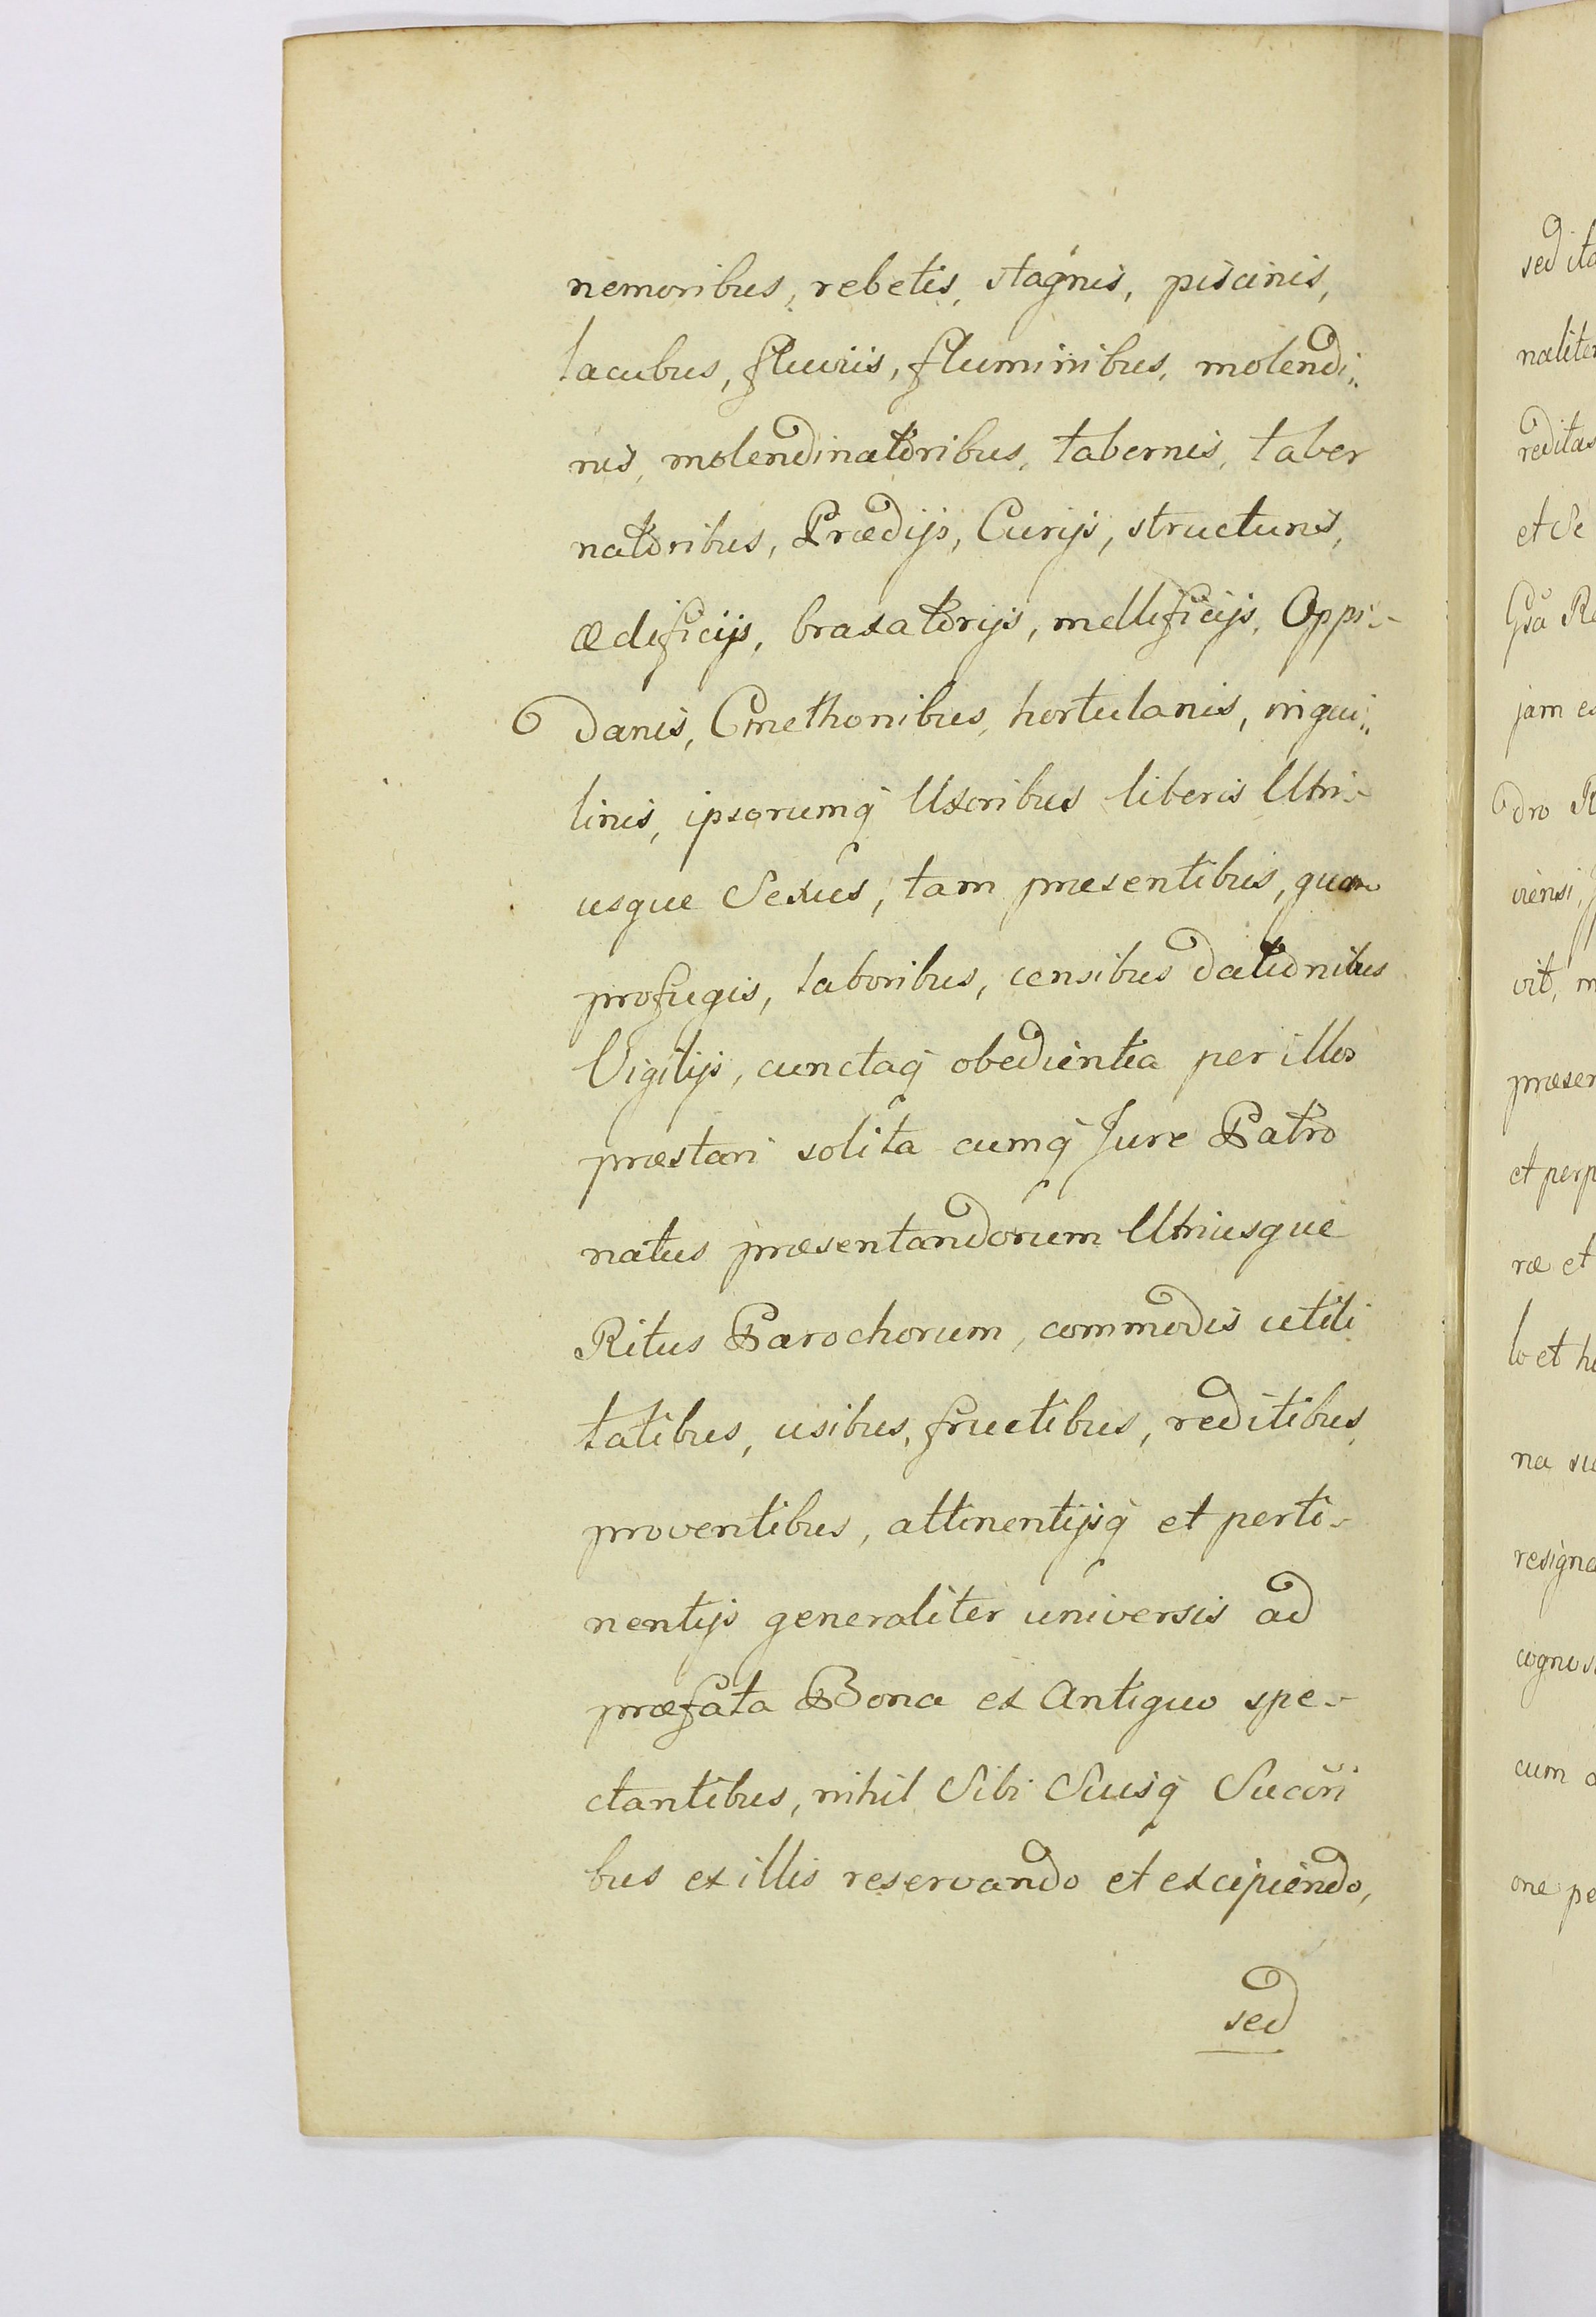 nemoribus, rebetis, stagnis, piscinis,
lacubus, fluviis, fluminibus, molendi„
nis, molendinatoribus, tabernis, taber
natoribus, Prædijs, Curijs, structuris,
ædificijs, braxatorijs, mellificijs, Oppi-
danis, Cmethonibus, hortulanis, inqui„
linis, ipsorumq̃ Uxoribus liberis Utri-
usque Sexus, tam præsentibus, quam
profugis, laboribus, censibus dationibus
Vigilijs, cunctaq̃ obedientia per illos
præstari solita cumq̃ Jure Patro
natus præsentandorum Utriusque
Ritus Parochorum, commodis utili
tatibus, usibus, fructibus, reditibus,
proventibus, attinentijsq̃ et perti-
nentijs generaliter universis ad
præfata Bona ex Antiquo spe-
ctantibus, nihil Sibi Suisq̃ Succri
bus ex illis reservando et excipiendo,
sed
sed ita
naliter
reditas
et Se
jam es
dro R
viensi,
vit, m
præsen
et perp
ræ et
lo et h
na su
resigna
cognos
cum
one pe